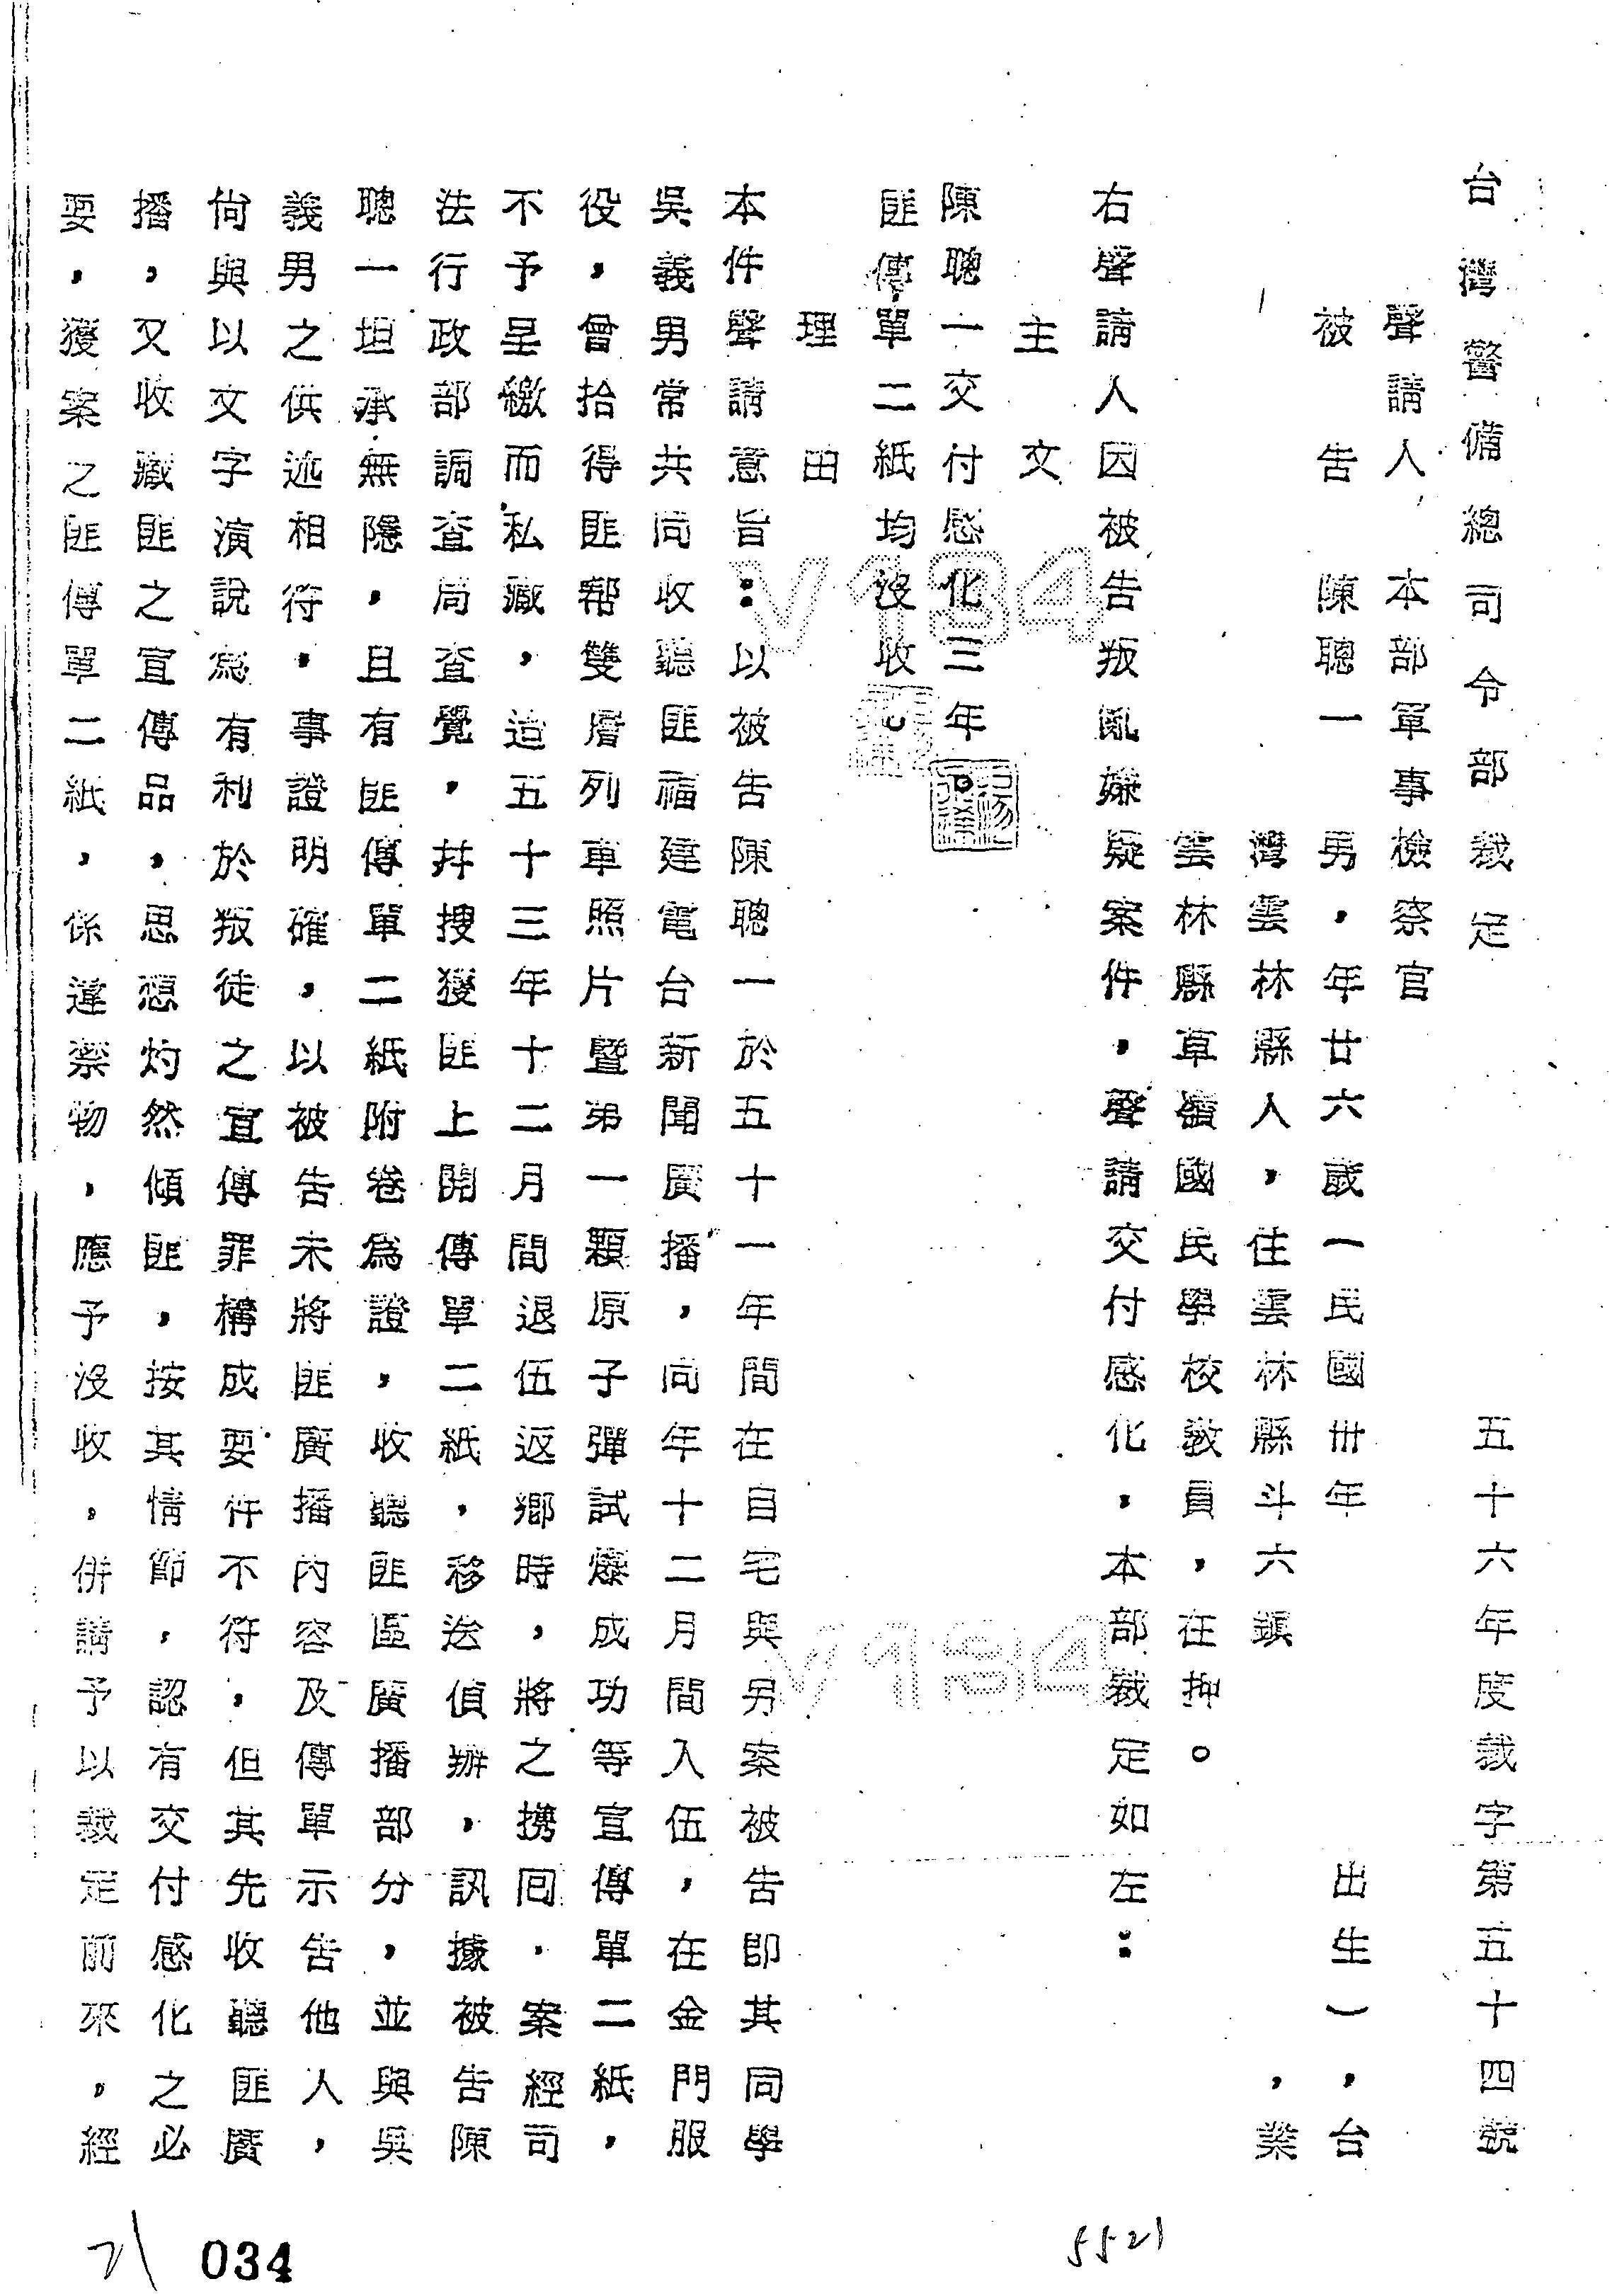 台灣警備總司令部裁定　五十六年度裁字第五十四號
聲請人　本部軍事檢察官
被告　陳聰一　男，年廿六歲一民國卅年　出生），台
灣雲林縣人，住雲林縣斗六鎮　，業
雲林縣草嶺國民學校教員，在押。
右聲請人因被告叛亂嫌疑案件，聲請交付感化，本部裁定如左：
主文
陳聰一交付感化三年。
匪傳單二紙均沒收。
理由
本件聲請意旨：以被告陳聰一於五十一年間在自宅與另案被告即其同學
吳義男常共同收聽匪福建電台新聞廣播，同年十二月間入伍，在金門服
役，曾拾得匪幫雙層列車照片暨第一顆原子彈試爆成功等宣傳單二紙，
不予呈繳而私藏，迨五十三年十二月間退伍返鄉時，將之携回，案經司
法行政部調查局查覺，幷搜獲匪上開傳單二紙，移送偵辦，訊據被告陳
聰一坦承無隱，且有匪傳單二紙附卷為證，收聽匪區廣播部分，並與吳
義男之供述相符，事證明確，以被告未將匪廣播內容及傳單示告他人，
尙與以文字演說為有利於叛徒之宣傳罪構成要件不符，但其先收聽匪廣
播，又收藏匪之宣傳品，思想灼然傾匪，按其情節，認有交付感化之必
要，獲案之匪傳單二紙，係違禁物，應予沒收，併請予以裁定前來，經
V134
V134
5521
034